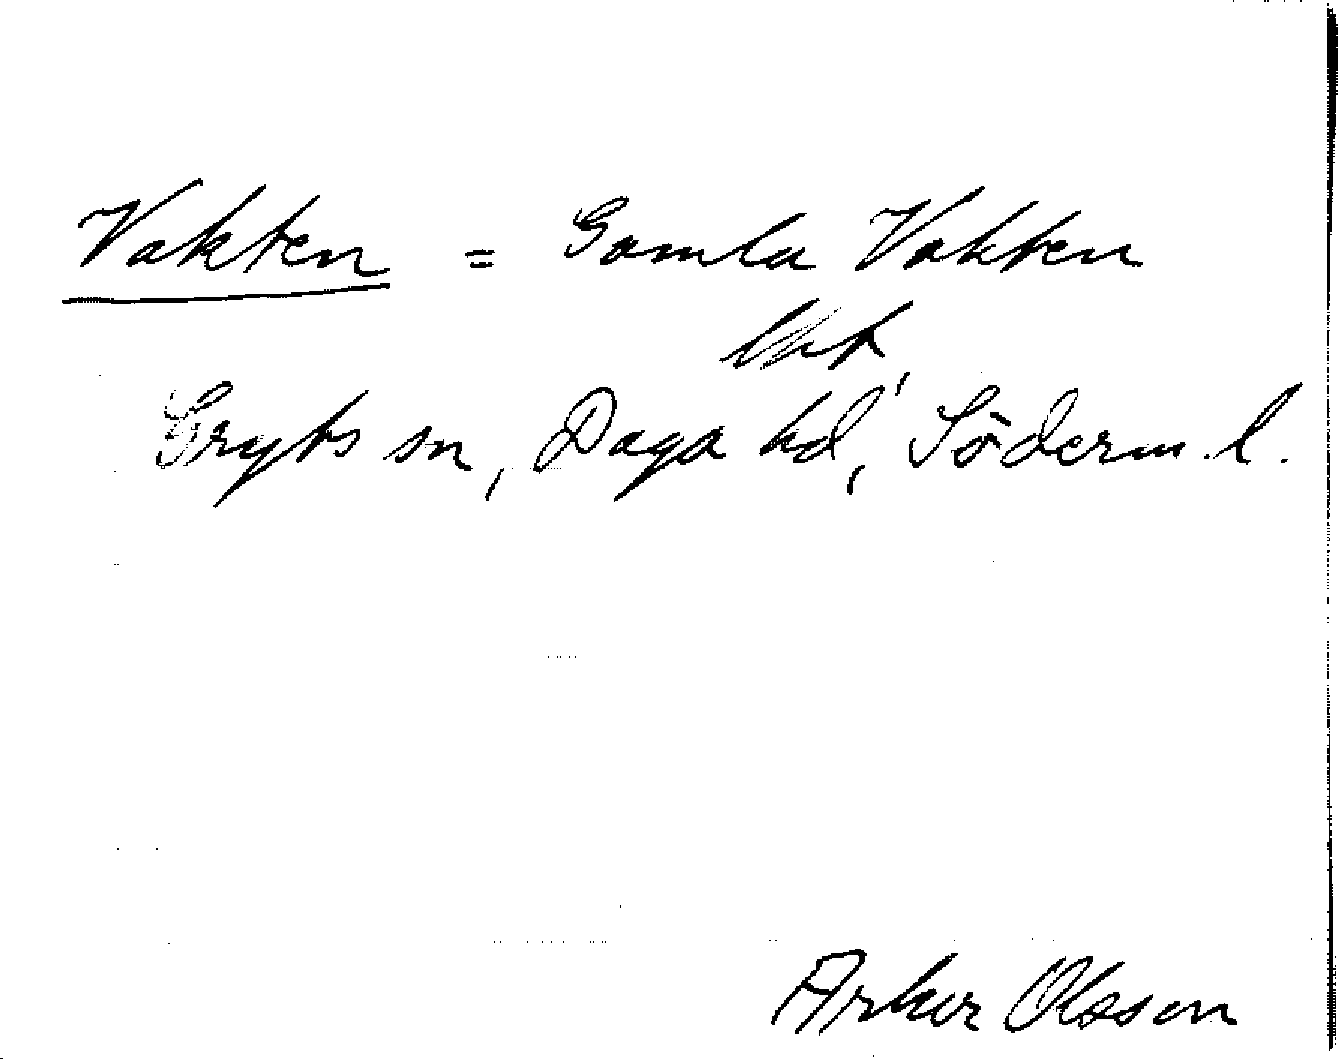 Vakten = Gamla Vakten
lht,
Gryts sn, Daga hd, Söderm. l.
Artur Olsson